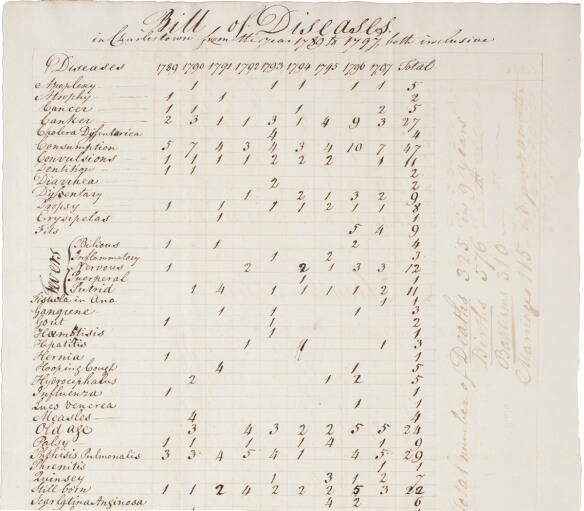 Bill of Diseases.
in Charlestown from the year 1789 to 1797, both inclusive
Diseases 1789 1790 1791 1792 1793 1794 1795 1796 1797 Total
Apoplexy 1 1 1 1 1 5
Atrophy 1 1 2
Cancer 1 1 1 2 5
Canker 2 3 1 1 3 1 4 9 3 27
Cholera Dysentarica 4 4
Consumption 5 7 4 3 4 3 4 10 7 47
Convulsions 1 1 1 1 2 2 2 1 11
Dentition 1 1 2
Diarrhea 2 2
Dysentary 1 2 1 3 2 9
Dropsy 1 1 1 1 2 1 1 8
Erysipelas 1 1
Fits 5 4 9
Fevers
Bilious 1 1 2 4
Inflammatory 1 2 3
Nervous 1 2 2 1 3 3 12
Puerperal 1 1
Putrid 1 4 1 1 1 1 2 11
Fistula in Ano 1 1
Gangrene 1 1 1 3
Gout 1 1 2
Hæmoptisis 1 1
Hepatitis 1 1 1 3
Hernia 1 1
Hooping Cough 4 1 5
Hydrocephalus 2 1 2 5
Influenza 1 1
Lues venerea 1 1
Measles 4 4
Old age 3 4 3 2 2 5 5 24
Palsy 1 1 1 1 4 1 9
Phthisis Pulmonalis 3 3 4 5 4 1 4 5 29
Phrenitis 1 1
Quinsey 1 3 1 2 7
Still born 1 1 2 4 2 2 2 5 3 22
Scarlatina Anginosa 4 2 6
total number of Deaths 325 in 9 years
Births 576
Baptisms 310
Marriages 115